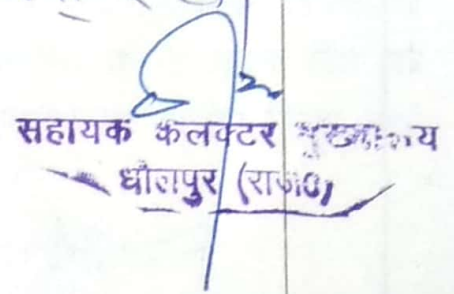 सहायक कलक्टर मुख्यालय
धौलपुर (राज0)